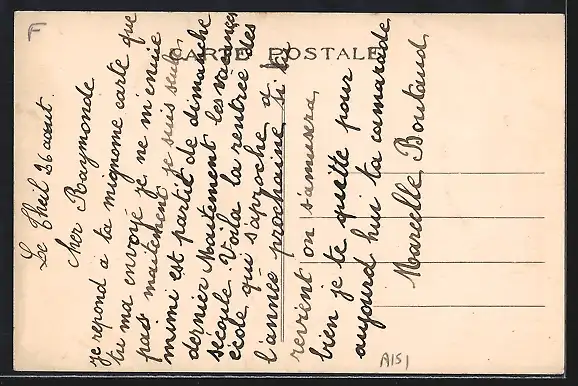 F
CARTE POSTALE
Le Theil 26 aout.
Cher Raymonde
je repond a ta mignome carte que
tu ma envoyé je ne m'enuie
pas maitement je suis seule
mimi est partit de dimanche
dernier Maitement les vacances
sécoule. Voila la rentrée des
école qui s'aproche, et
l'année prochaine si tu
revient on s'amusera
bien je te quitte pour
aujourd hui ta camarade
Marcelle Boutaud
A151